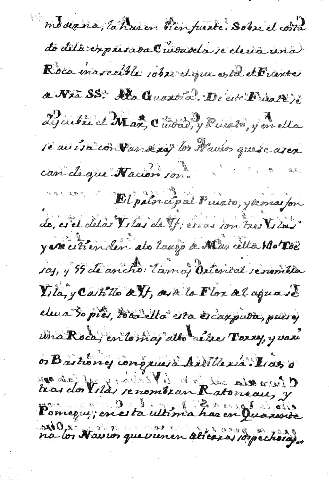 moderna, la hacen bien fuerte. Sobre el costa
do dela expresada Ciudadela se eleva una
Roca inascesible sobre el que está el Fuerte
de Nrã. SSã. dela Guardia. De este Fuerte se
descubre el Mar, Ciudad, y Puerto, y en ella
se avisa con Vanderas los Navios que se acer
can de que Nacion son.
El principal Puerto, y demas fon
do, es el delas Yslas de Yf; estas son tres Yslas
y se estienden alo largo de Marcella Toe
sas, y 55 de ancho: la mas Oriental se nombra
Ysla, y Castillo de Yf, desde la Flor del agua se
eleva 50 pies, toda ella esta escarpada, pues es
una Roca; en lo mas alto tiene Torres, y vari
os Bastiones con gruesa Artilleria. Las o
tras dos Yslas se nombran Ratoneau, y
Pomegue; en esta ultima hacen Quarente
na los Navios que vienen de tierras sospechosas.